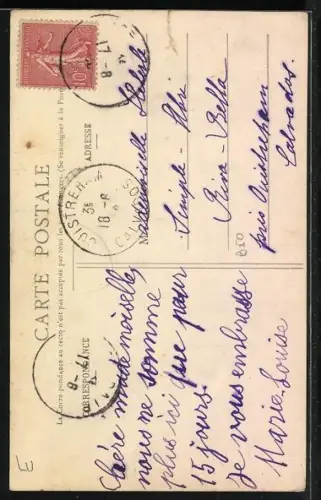 CARTE POSTALE
La Correspondance au recto n'est pas acceptée par tous les pays étrangers. (Se renseigner à la Poste)
CORRESPONDANCE
ADRESSE
Chère mademoiselle
nous ne somme
plus ici que pour
15 jours.
Je vous embrasse
Marie-Louise
Mademoiselle
Simple
Riva-Bella
près Ouistreham
Calvados.
OUISTREHAM
CALVADOS
3E
18-8
17-8
10
E